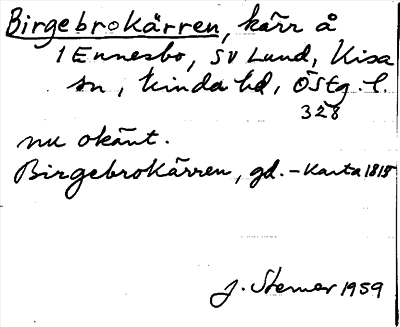 Birgebrokärren, kärr å
1 Ennesbo, SV Lund, Kisa
sn, Kinda hd, Östg. l.
328
nu okänt.
Birgebrokärren, gd. – Karta 1815
J. Sterner 1959